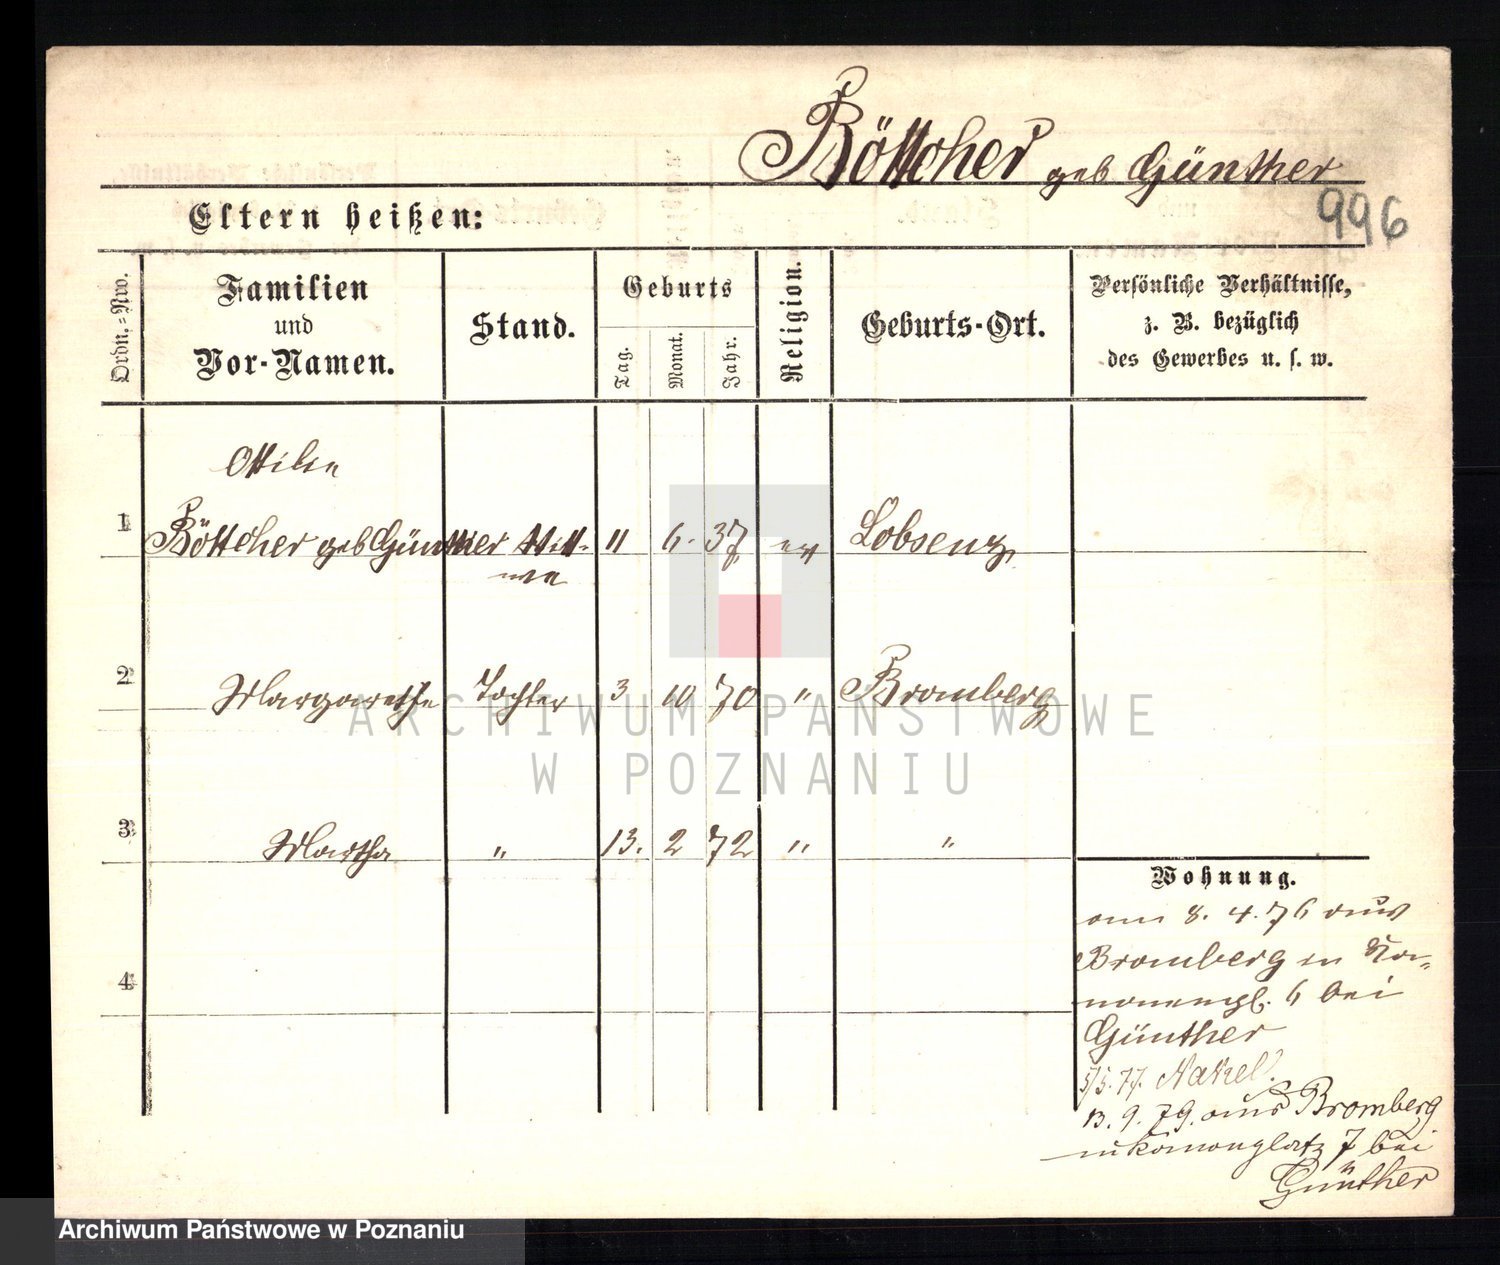 Böttcher geb Günther
996
Eltern heißen:
Ordn.-Nro.
Familien
und
Vor-Namen.
Stand.
Geburts
Tag.
Monat.
Jahr.
Religion.
Geburts-Ort.
Persönliche Verhältnisse,
z. B. bezüglich
des Gewerbes u. s. w.
Ottilie
1 Böttcher geb Günther Witt- 11 6. 37 ev Lobsenz
we
2 Margarethe Tochter 3 10 70 " Bromberg
3 Martha " 13. 2 72 " "
4
Wohnung.
am 8. 4. 76 aus
Bromberg n Ka-
nonenpl. 6 bei
Günther
5/5. 77. Nakel
13. 9. 79. aus Bromberg
n Kanonplatz 7 bei
Günther
ARCHIWUM PAŃSTWOWE
W POZNANIU
Archiwum Państwowe w Poznaniu